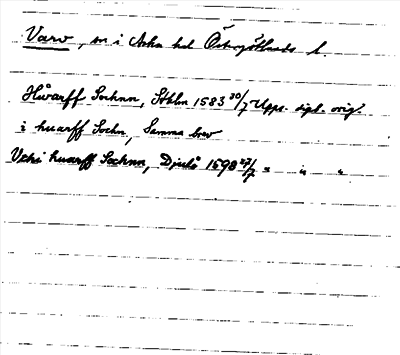 Varv, sn i Aska hd Östergötlands l.
Hwarff Sochnn, Sthlm 1583 30/7 Upps. dipl. orig.
i huarff Sochn, Samma brev
Vthi huarff Sochnn, Djulö 1598 27/7 " " "